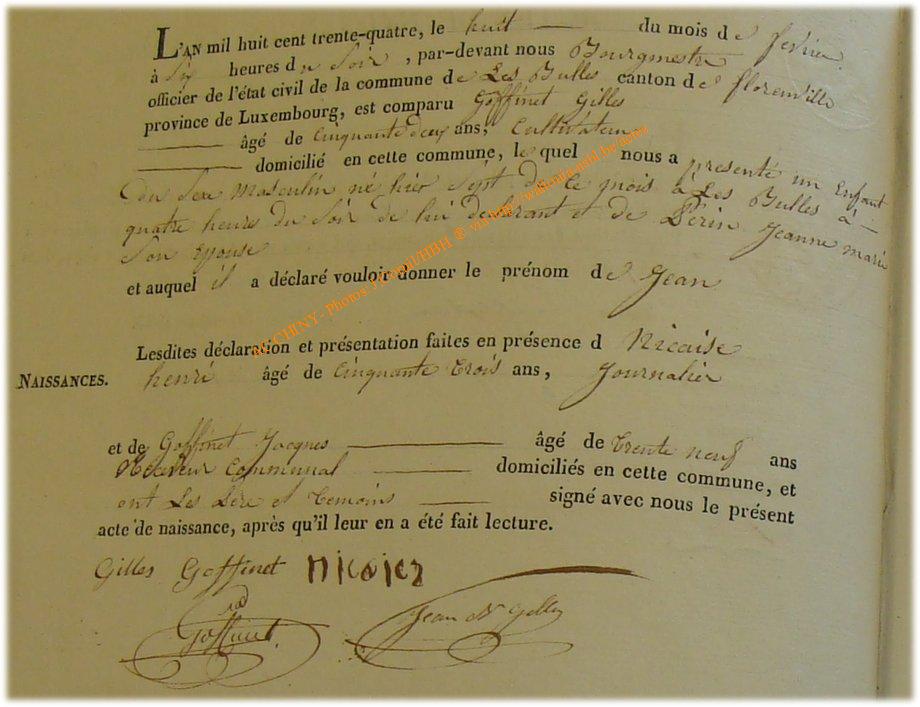 L'AN mil huit cent trente-quatre, le huit du mois de fevrier
à Six heures du Soir, par-devant nous Bourgmestre
officier de l'état civil de la commune de Les Bulles canton de florenville
province de Luxembourg, est comparu Goffinet Gilles
âgé de Cinquante deux ans, Cultivateur
domicilié en cette commune, le quel nous a presenté un Enfant
du Sex Masculin né hier Sept de ce mois à Les Bulles à
quatre heures du Soir de lui declarant et de Perin Jeanne marie
Son epouse
et auquel il a déclaré vouloir donner le prénom de Jean
Lesdites déclaration et présentation faites en présence d Nicaise
NAISSANCES.
henri âgé de Cinquante trois ans, Journalier
et de Goffinet Jacques âgé de trente neuf ans
Receveur Communal domiciliés en cette commune, et
ont Les Pere et temoins signé avec nous le présent
acte de naissance, après qu'il leur en a été fait lecture.
Gilles Goffinet nicaiez
Goffinet Jean N Gilles